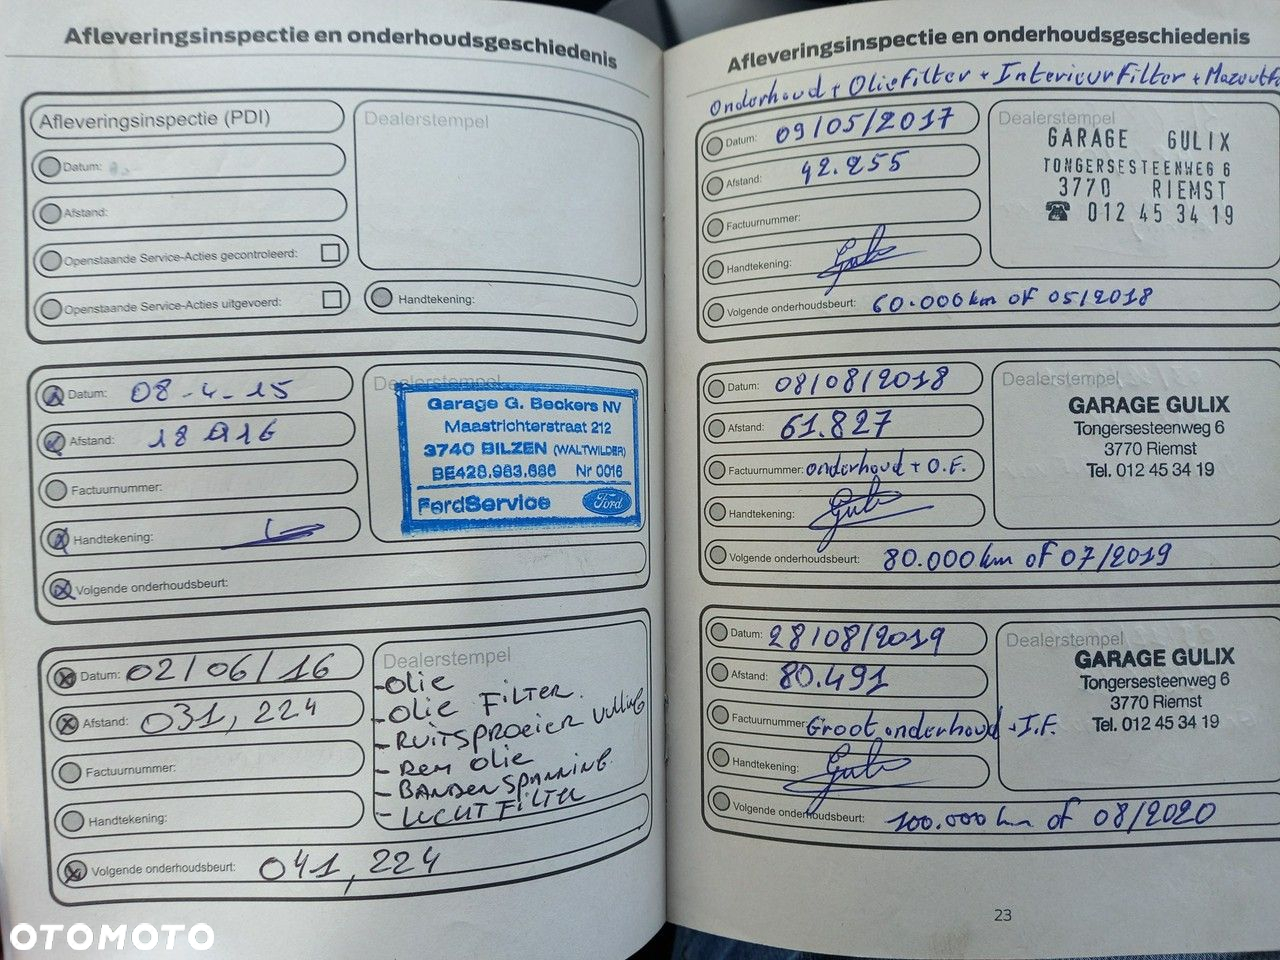 Afleveringsinspectie en onderhoudsgeschiedenis
Afleveringsinspectie (PDI)
Dealerstempel
Datum:
Afstand:
Openstaande Service-Acties gecontroleerd:
Openstaande Service-Acties uitgevoerd:
Handtekening:
Datum: 08-4-15
Afstand:
Factuurnummer:
Handtekening:
Volgende onderhoudsbeurt:
Dealerstempel
Garage G. Beckers NV
Maastrichterstraat 212
3740 BILZEN (WALTWILDER)
BE428.983.686 Nr 0016
FordService
Ford
Datum: 02/06/16
Afstand: 031,224
Factuurnummer:
Handtekening:
Volgende onderhoudsbeurt: 041,224
Dealerstempel
-OLIE
-OLIE FILTER.
-RUITSPROEIER VULLING
- REM OLIE
- BANDENSPANNING.
- LUCHTFILTER
Afleveringsinspectie en onderhoudsgeschiedenis
Onderhoud + OlieFilter + InterieurFilter +
Datum: 09/05/2017
Afstand: 42.255
Factuurnummer:
Handtekening:
Volgende onderhoudsbeurt: 60.000km of 05/2018
Dealerstempel
GARAGE GULIX
TONGERSESTEENWEG 6
3770 RIEMST
☎ 012 45 34 19
Datum: 08/08/2018
Afstand: 61.827
Factuurnummer: onderhoud + O.F.
Handtekening:
Volgende onderhoudsbeurt: 80.000km of 07/2019
Dealerstempel
GARAGE GULIX
Tongersesteenweg 6
3770 Riemst
Tel. 012 45 34 19
Datum: 28/08/2019
Afstand: 80.491
Factuurnummer: Groot onderhoud + I.F.
Handtekening:
Volgende onderhoudsbeurt: 100.000 km of 08/2020
Dealerstempel
GARAGE GULIX
Tongersesteenweg 6
3770 Riemst
Tel. 012 45 34 19
23
OTOMOTO